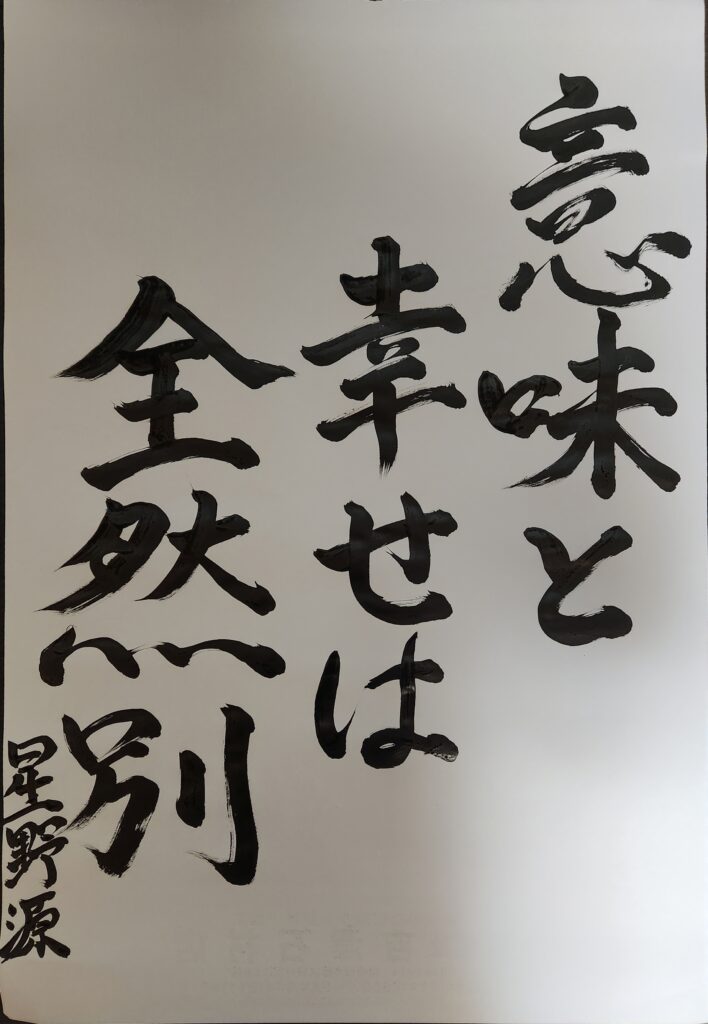 意味と
幸せは
全然別
星野源